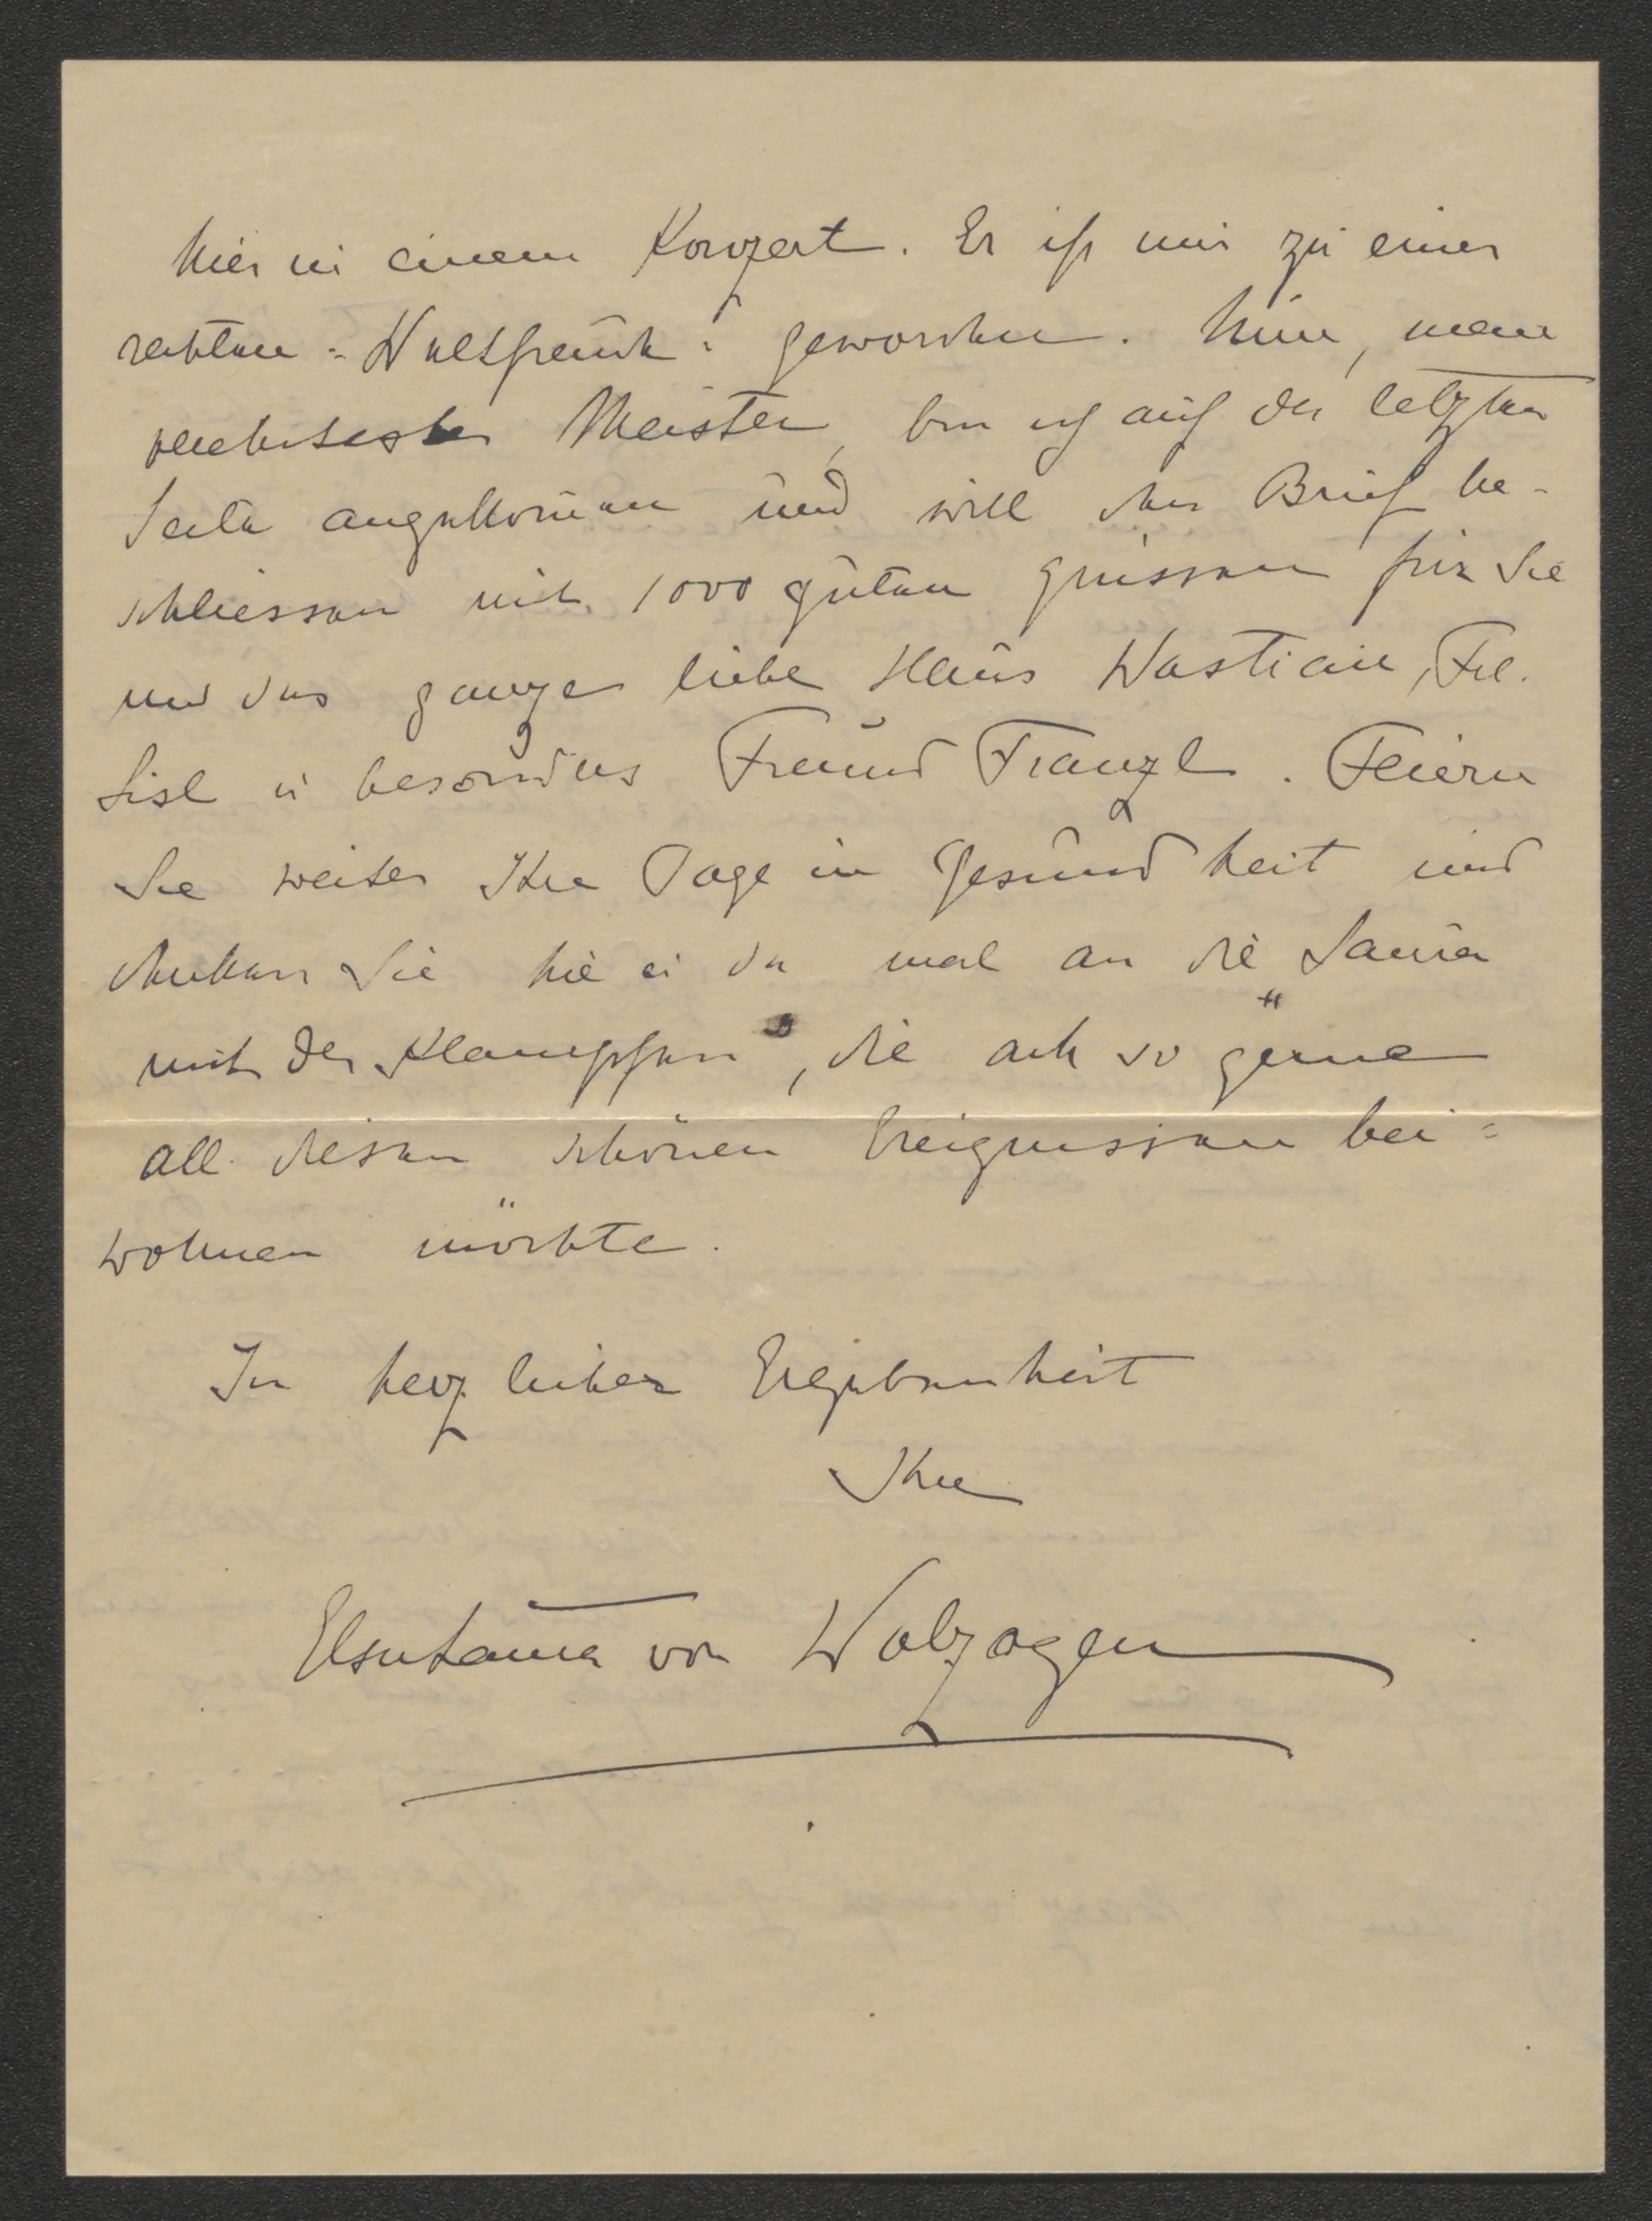 hier in einem Konzert. Er ist mir zu einer
rechten = Weltfreude = geworden. Nun, mein
verehrtester Meister, bin ich auf der letzten
Seite angekommen und will den Brief be-
schliessen mit 1000 guten Grüssen für Sie
und das ganze liebe Haus Wastian, Frl.
Lisl u besonders Freund Franzl. Feiern
Sie weiter Ihre Tage in Gesundheit und
denken Sie hie u da mal an die „Laura
mit der Klampfen“, die ach so gerne
all diesen schönen Ereignissen bei=
wohnen möchte.
In herzlicher Ergebenheit
Ihre
Elsa Laura von Wolzogen